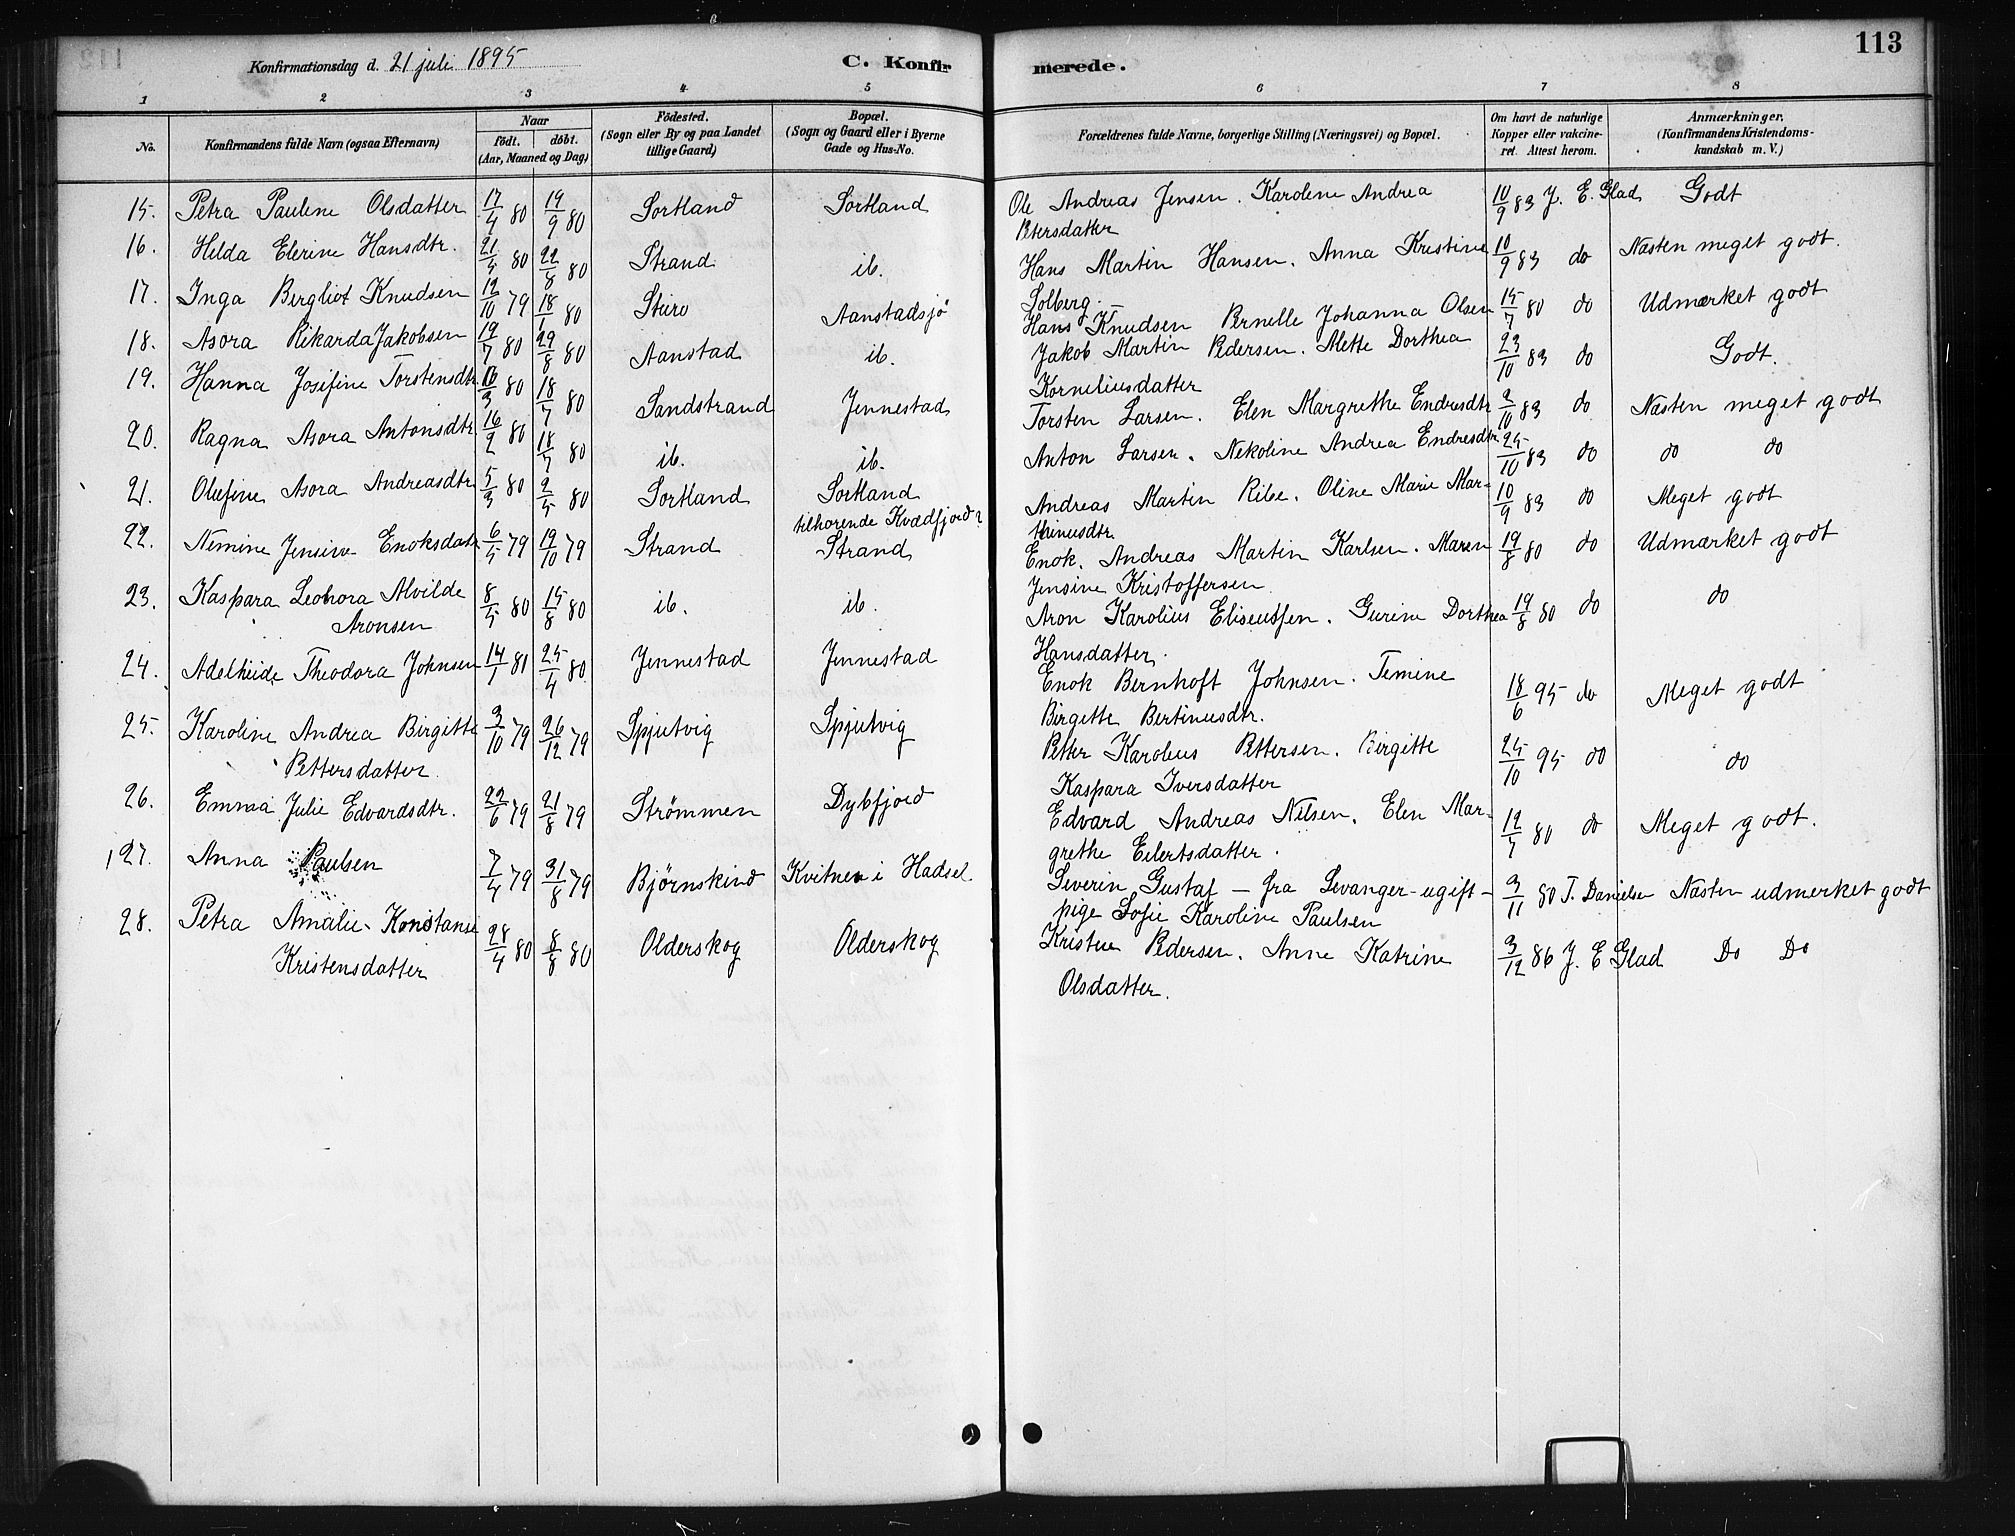 113
Konfirmationsdag d. 21 juli 1895
C. Konfirmerede.
1 2 3 4 5 6 7 8
No.
Konfirmandens fulde Navn (ogsaa Efternavn)
Naar
födt. döbt.
(Aar, Maaned og Dag)
Födested.
(Sogn eller By og paa Landet
tillige Gaard)
Bopæl.
(Sogn og Gaard eller i Byerne
Gade og Hus-No.
Forældrenes fulde Navne, borgerlige Stilling (Næringsvei) og Bopæl.
Om havt de naturlige
Kopper eller vakcine-
ret. Attest herom.
Anmærkninger,
(Konfirmandens Kristendoms-
kundskab m. V.)
15. Petra Pauline Olsdatter 17/4 80 19/9 80 Sortland Sortland Ole Andreas Jensen. Karoline Andrea 10/9 83 J. E. Glad Godt
Petersdatter
16. Helda Elerine Hansdtr. 21/4 80 22/8 80 Strand ib. Hans Martin Hansen. Anna Kristine 10/9 83 do Næsten meget godt.
Solberg.
17. Inga Bergliot Knudsen 12/10 79 18/1 80 Sturo Aanstadsjø Hans Knudsen Pernelle Johanna Olsen 15/7 80 do Udmærket godt
18. Asora Rikarda Jakobsen 19/7 80 29/8 80 Aanstad ib. Jakob Martin Pedersen. Alette Dorthea 23/10 83 do Godt.
Korneliusdatter
19. Hanna Josifine Torstensdtr 16/3 80 18/7 80 Sandstrand Jennestad Torsten Larsen. Elen Margrethe Endresdtr 2/10 83 do Næsten meget godt
20. Ragna Asora Antonsdtr 16/2 80 18/7 80 ib. ib. Anton Larsen. Nekoline Andrea Endresdtr 25/10 83 do do do
21. Olufine Asora Andreasdtr 5/3 80 2/5 80 Sortland Sortland Andreas Martin Ribe. Oline Marie Mar- 10/9 83 do Meget godt
tilhørende Kvædfjord? thinusdtr.
22. Nemine Jensine Enoksdatr 6/5 79 19/10 79 Strand Strand Enok. Andreas Martin Karlsen. Maren 19/8 80 do Udmærket godt
Jensine Kristoffersen
23. Kaspara Leonora Alvilde 8/5 80 15/8 80 ib. ib. Aron Karolius Eliseussen. Gurine Dorthea 19/8 80 do do
Aronsen Hansdatter.
24. Adelheide Theodora Johnsen 14/1 81 25/4 80 Jennestad Jennestad Enok Bernhoft Johnsen. Temine 18/6 95 do Meget godt
Birgitte Bertinusdtr.
25. Karoline Andrea Birgitte 3/10 79 26/12 79 Spjutvig Spjutvig Petter Karolius Pettersen. Birgitte 25/10 95 do do
Pettersdatter Kaspara Iversdatter
26. Emma Julie Edvardsdtr. 22/6 79 21/8 79 Strømmen Dybfjord Edvard Andreas Nilsen. Elen Mar- 12/7 80 do Meget godt.
grethe Eilertsdatter.
27. Anna Paulsen 7/4 79 31/8 79 Bjørnskind Kvitnes i Hadsel Severin Gustaf - fra Levanger - ugift - 3/11 80 T. Danielsen Næsten udmerket godt
pige Sofie Karoline Paulsen
28. Petra Amalie Konstanse 28/4 80 8/8 80 Olderskog Olderskog Kristen Pedersen. Anne Katrine 3/12 86 J. E Glad Do Do
Kristensdatter Olsdatter.